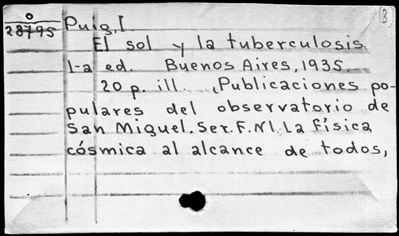 0
28795
Puig, I.
El sol y la tuberculosis
1-a ed. Buenos Aires, 1935.
20 p. ill. (Publicaciones po-
pulares del observatorio de
San Miguel. Ser. F. N1. La física
cósmica al alcance de todos,